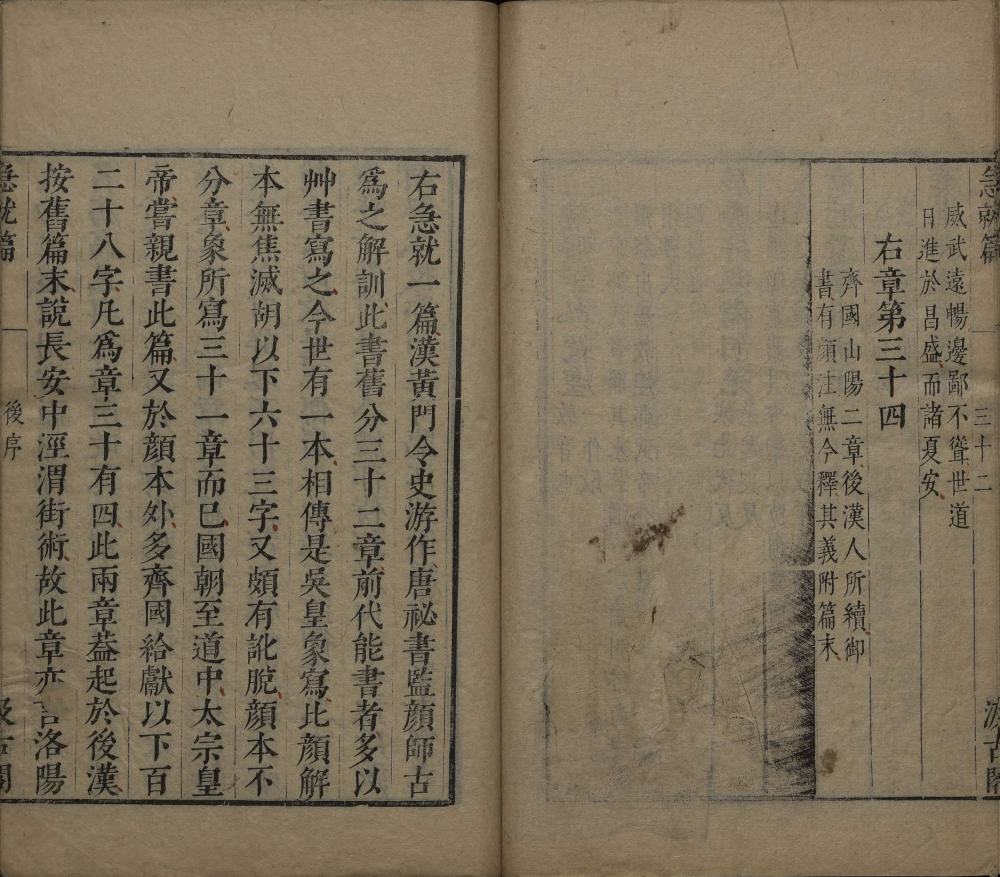 急就篇
三十二
汲古閣
威武遠暢邊鄙不聳世道
日進於昌盛而諸夏安
右章第三十四
齊國山陽二章後漢人所續御
書有顏注無今釋其義附篇末
右急就一篇漢黃門令史游作唐祕書監顏師古
爲之解訓此書舊分三十二章前代能書者多以
艸書寫之今世有一本相傳是吳皇象寫比顏解
本無焦滅胡以下六十三字又頗有訛脫顏本不
分章象所寫三十一章而已國朝至道中太宗皇
帝嘗親書此篇又於顏本外多齊國給獻以下百
二十八字凡爲章三十有四此兩章葢起於後漢
按舊篇末說長安中涇渭街術故此章亦言洛陽
急就篇
後序
汲古閣